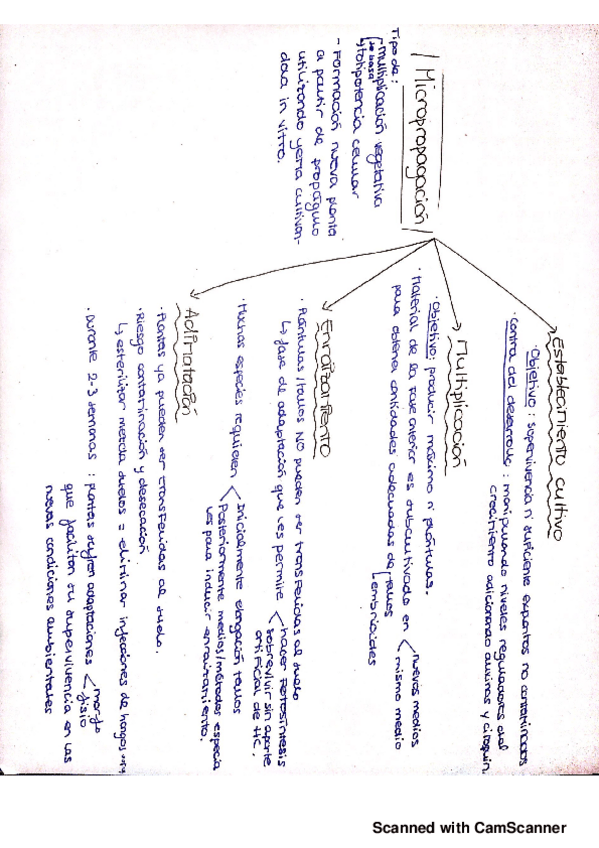 Micropropagación
Tipo de:
multiplicación vegetativa
totipotencia celular
- Formación nueva planta
a partir de propágulo
utilizando yema cultivan-
dola in vitro.
Establecimiento cultivo
· Objetivo: supervivencia nº suficiente explantos no contaminados
· Control del desarrollo: manipulando niveles reguladores del
crecimiento adicionando auxinas y citoquin
Multiplicación
· Objetivo: producir máximo nº plántulas.
· Material de la fase anterior es subcultivado en
nuevos medios
mismo medio
para obtener cantidades adecuadas de
tallos
embrioides
Enraizamiento
· Plántulas/tallos NO pueden ser transferidas al suelo
↳ fase de adaptación que les permite
hacer fotosíntesis
sobrevivir sin aporte
artificial de HC.
· Muchas especies requieren
Inicialmente elongación tallos
Posteriormente medios/métodos especia
les para inducir enraizamiento.
Aclimatación
· Plantas ya pueden ser transferidas al suelo.
· Riesgo contaminación y desecación.
↳ esterilizar mezcla suelos = eliminar infecciones de hongos
· Durante 2-3 semanas: plantas sufren adaptaciones
morfo
fisio
que facilitan su supervivencia en las
nuevas condiciones ambientales
Scanned with CamScanner